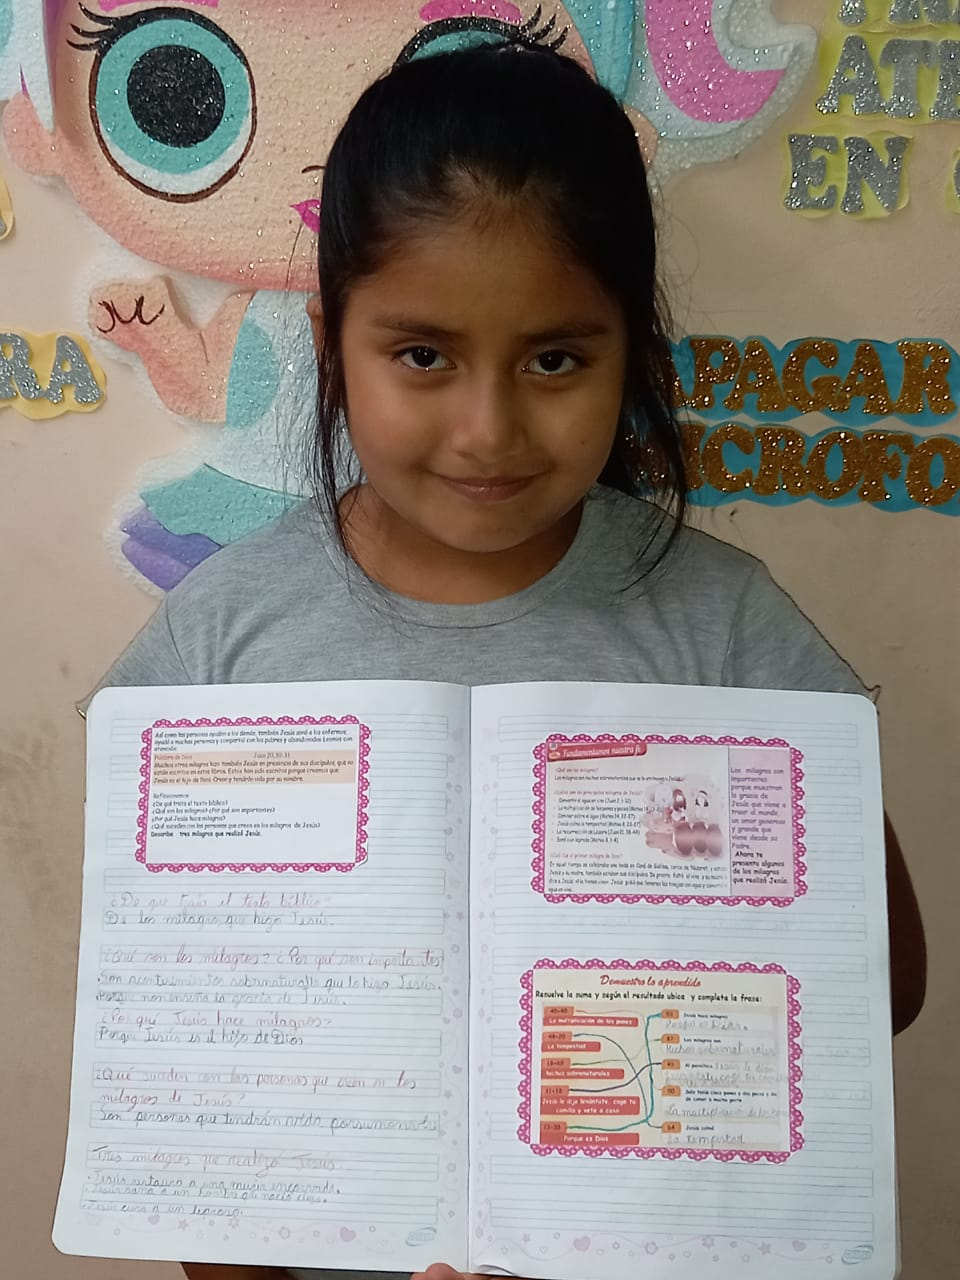 ATE
EN
RA
APAGAR
MICROFO
Así como las personas ayudan a los demás, también Jesús sanó a los enfermos,
ayudó a muchas personas y compartió con los pobres y abandonados. Leamos con
atención:
Palabra de Dios Juan 20,30-31
Muchos otros milagros hizo también Jesús en presencia de sus discípulos, que no
están escritos en estos libros. Estos han sido escritos porque creemos que
Jesús es el hijo de Dios. Crean y tendrán vida por su nombre.
Reflexionemos
¿De qué trata el texto bíblico?
¿Qué son los milagros? ¿Por qué son importantes?
¿Por qué Jesús hace milagros?
¿Qué suceden con las personas que creen en los milagros de Jesús?
Describe tres milagros que realizó Jesús.
¿De que trata el texto bíblico?
De los milagros que hizo Jesús.
¿Qué son los milagros? ¿Por qué son importantes?
.Son acontesimientos sobrenaturalls que lo hizo Jesús.
.Porque nos enseña la gracia de Jesús.
¿Por qué Jesús hace milagros?
Porque Jesús es el hijo de Dios
¿Qué suceden con las personas que creen en los
milagros de Jesús?
Son personas que tendrán vida
Tres milagros que realizó Jesús:
. Jesús restaura a una mujer encorvada.
. Jesús sana a un hombre que nació ciego.
. Jesús cura a un leproso.
Fundamentamos nuestra fe
¿Qué son los milagros?
Los milagros son hechos sobrenaturales que se le atribuyen a Jesús.
¿Cuáles son los principales milagros de Jesús?
- Convertir el agua en vino (Juan 2, 1-12)
- La multiplicación de los panes y peces (Mateo 14,
- Caminar sobre el agua (Mateo 14, 22-27)
- Jesús calma la tempestad (Mateo 8, 23-27)
- La resurrección de Lázaro (Juan 11, 38-44)
- Sanó a un leproso (Mateo 8, 1-4)
¿Cuál fue el primer milagro de Jesús?
En aquel tiempo se celebraba una boda en Caná de Galilea, cerca de Nazaret, y estaba
Jesús y su madre, también estaban sus discípulos. De pronto faltó el vino y su madre
dice a Jesús: «No tienen vino». Jesús pidió que llenaran las tinajas con agua y convirtió el
agua en vino.
Los milagros son
importantes
porque muestran
la gracia de
Jesús que viene a
traer al mundo,
un amor generoso
y grande que
viene desde su
Padre.
Ahora te
presento algunos
de los milagros
que realizó Jesús.
Demuestro lo aprendido
Resuelve la suma y según el resultado ubica y completa la frase:
45+45
La multiplicación de los panes
44+20
La tempestad
hechos sobrenaturales
Jesús le dijo levántate, coge tu
camilla y vete a casa
Porque es Dios
Jesús hace milagros
Porque es Dios.
87 Los milagros son
Hechos sobrenaturales
Al paralítico Jesús le dijo
90 Solo tenía cinco panes y dos peces y dio
de comer a mucha gente
La multiplicación de los panes
64 Jesús calmó
La tempestad